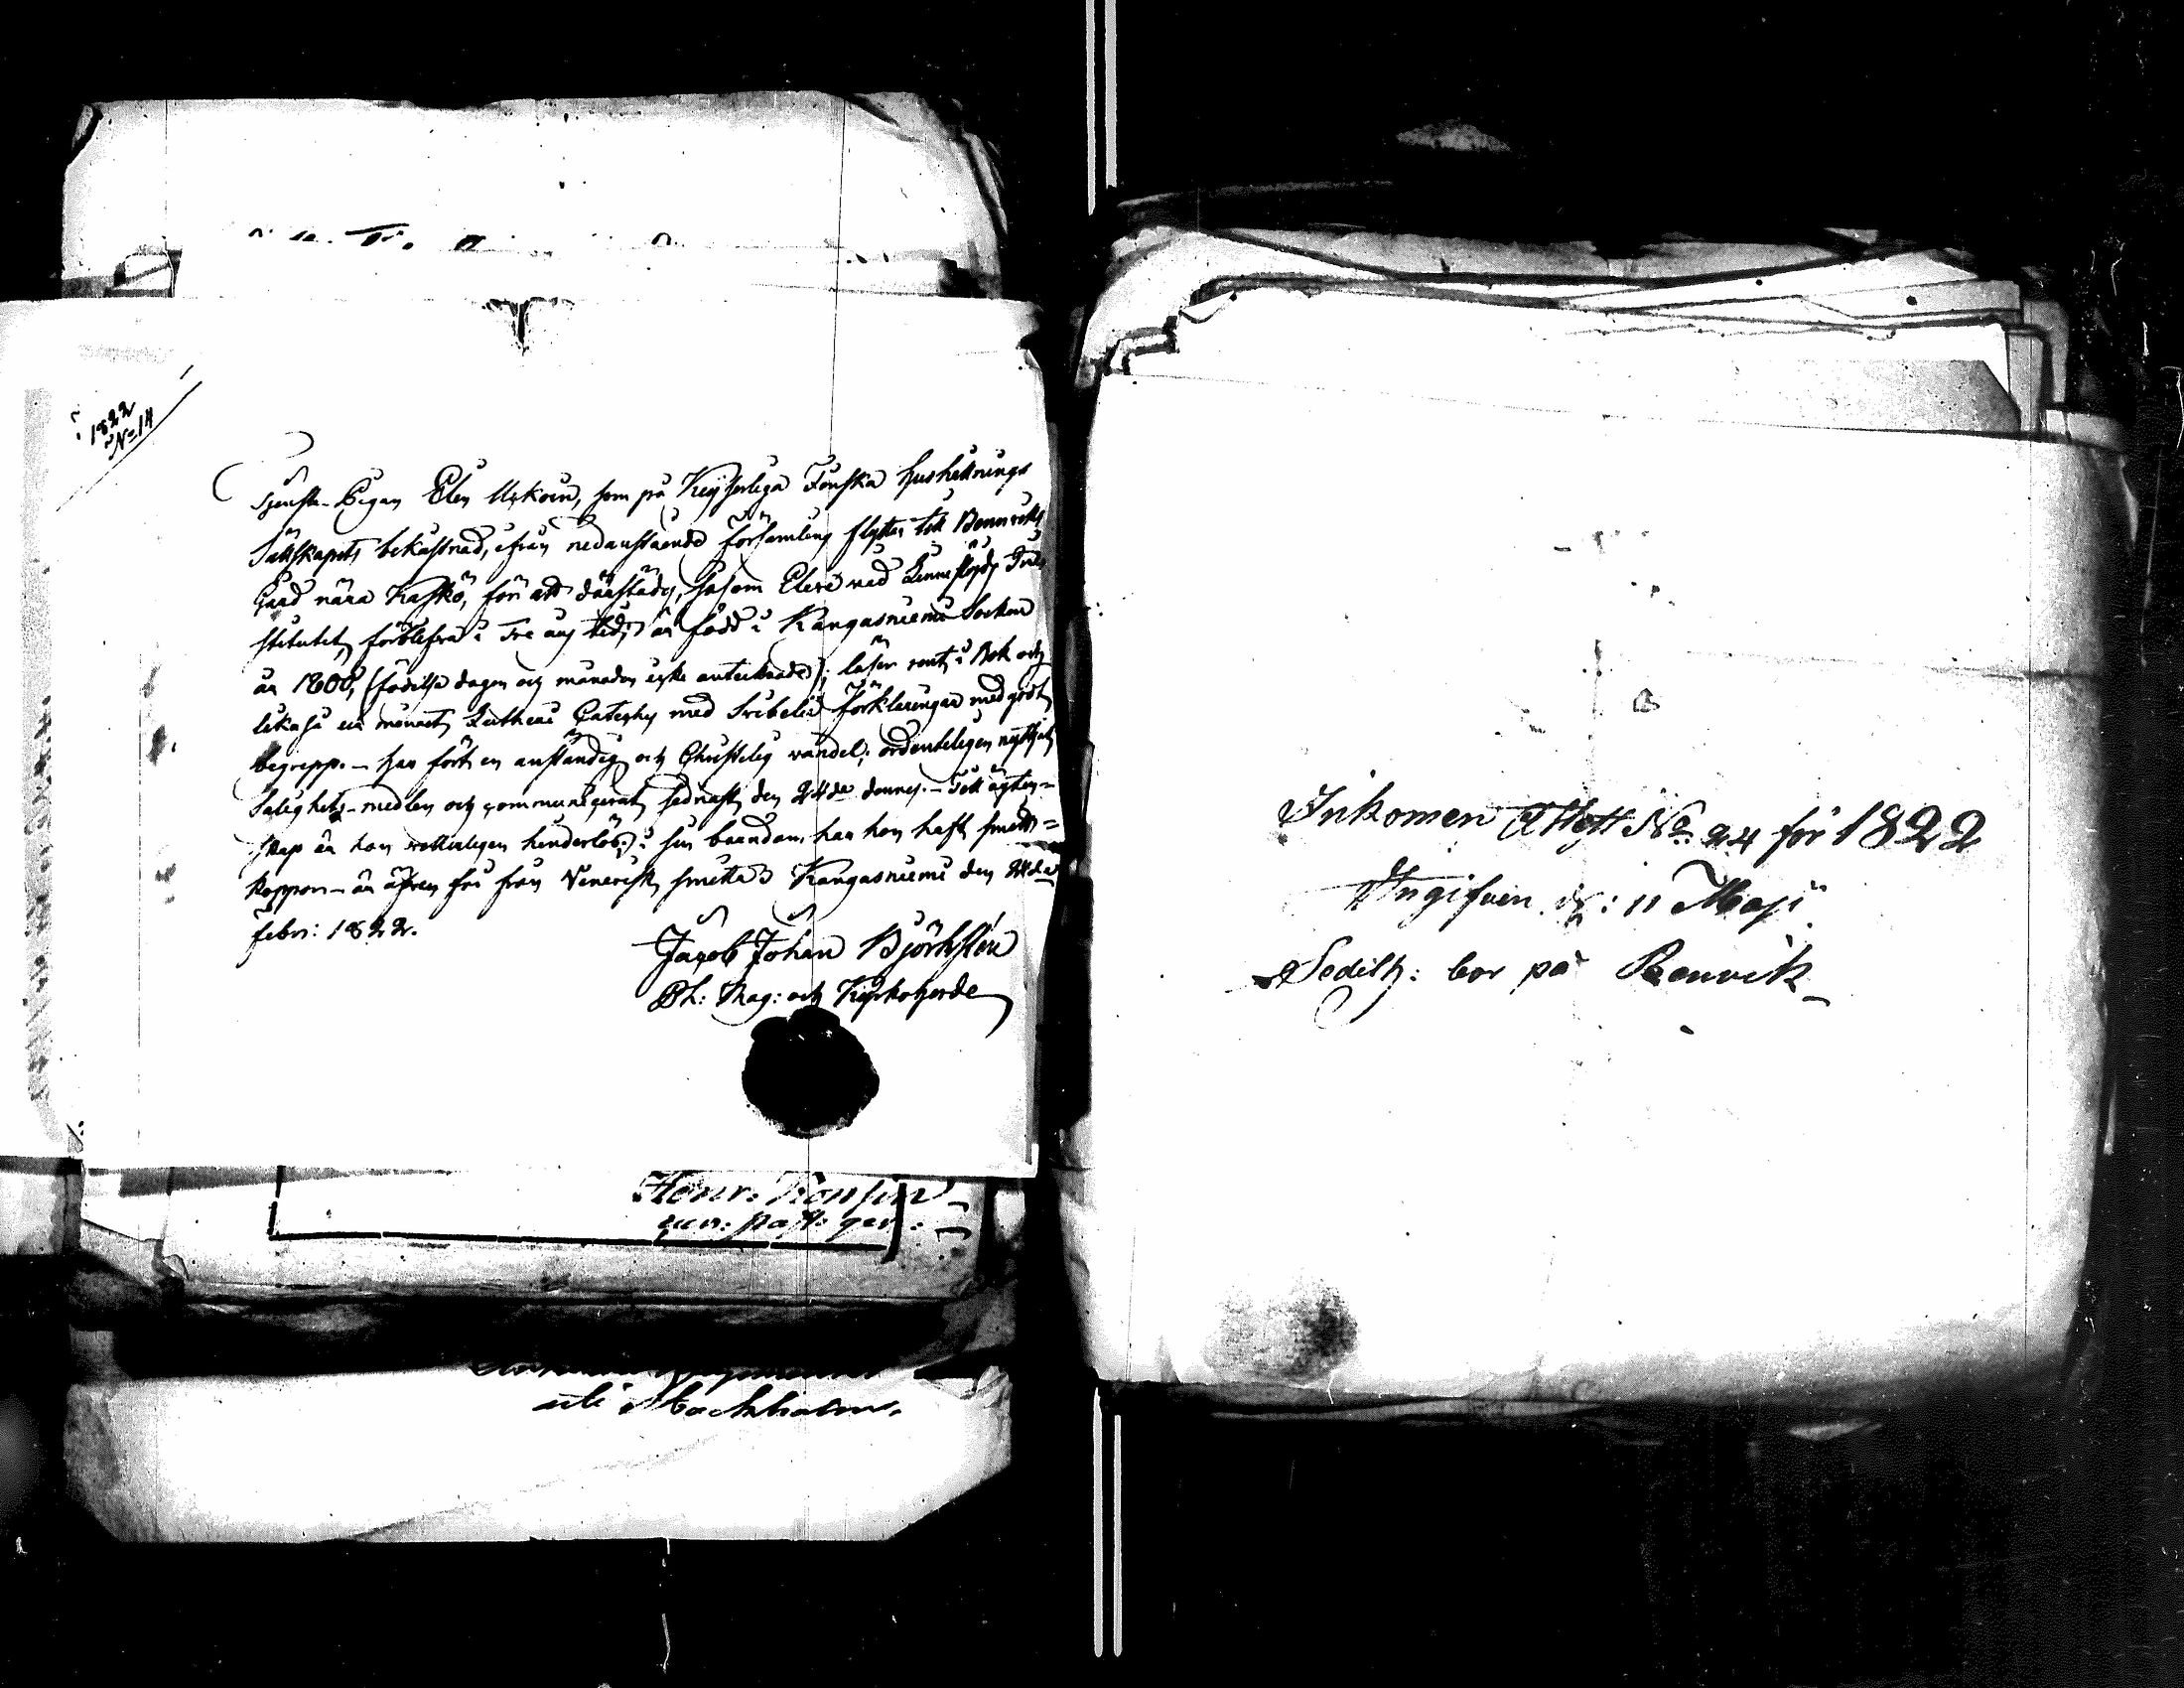 1822
No 14
Tjenste-Pigan Elin Uskoin, som på Keijserliga Finska Hushållnings
Sällskapets bekåstnad, ifrån nedanstående församling flyttar till Benviks
Gård nära Kaskö, för att därstädes, såsom Elev vid Linneslögds In-
stitutet, förblifva i Tre års tid; är född i Kangasniemi Socken
år 1800, (födelse dagen och månaden icke antecknade); läser rent i Bok och
likaså ur minnet Lutheri Cateches med Svebelii förklaringar med godt
begrepp. - har fört en anständig och Christelig vandel; ordenteligen nyttjat
Salighets-medlen och communicerat sednast den 24de dennes. - Till ägten-
skap är hon witterligen hinderlös; i sin barndom har hon haft smitt-
koppor - är äfven fri från Venerisk smitta. Kangasniemi den 24de
Febr: 1822.
Jacob Johan Björksten
Ph: Mag: och Kyrkoherde
Henr. Konsin
Inkomen Attest No 24 för 1822
Ingifven d: 11 Maji
bor på Benvik